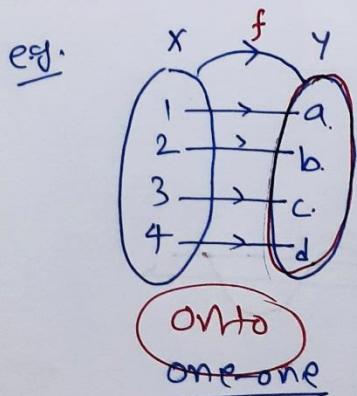 f
eg. X Y
1 a.
2 b.
3 c.
4 d
onto
one-one